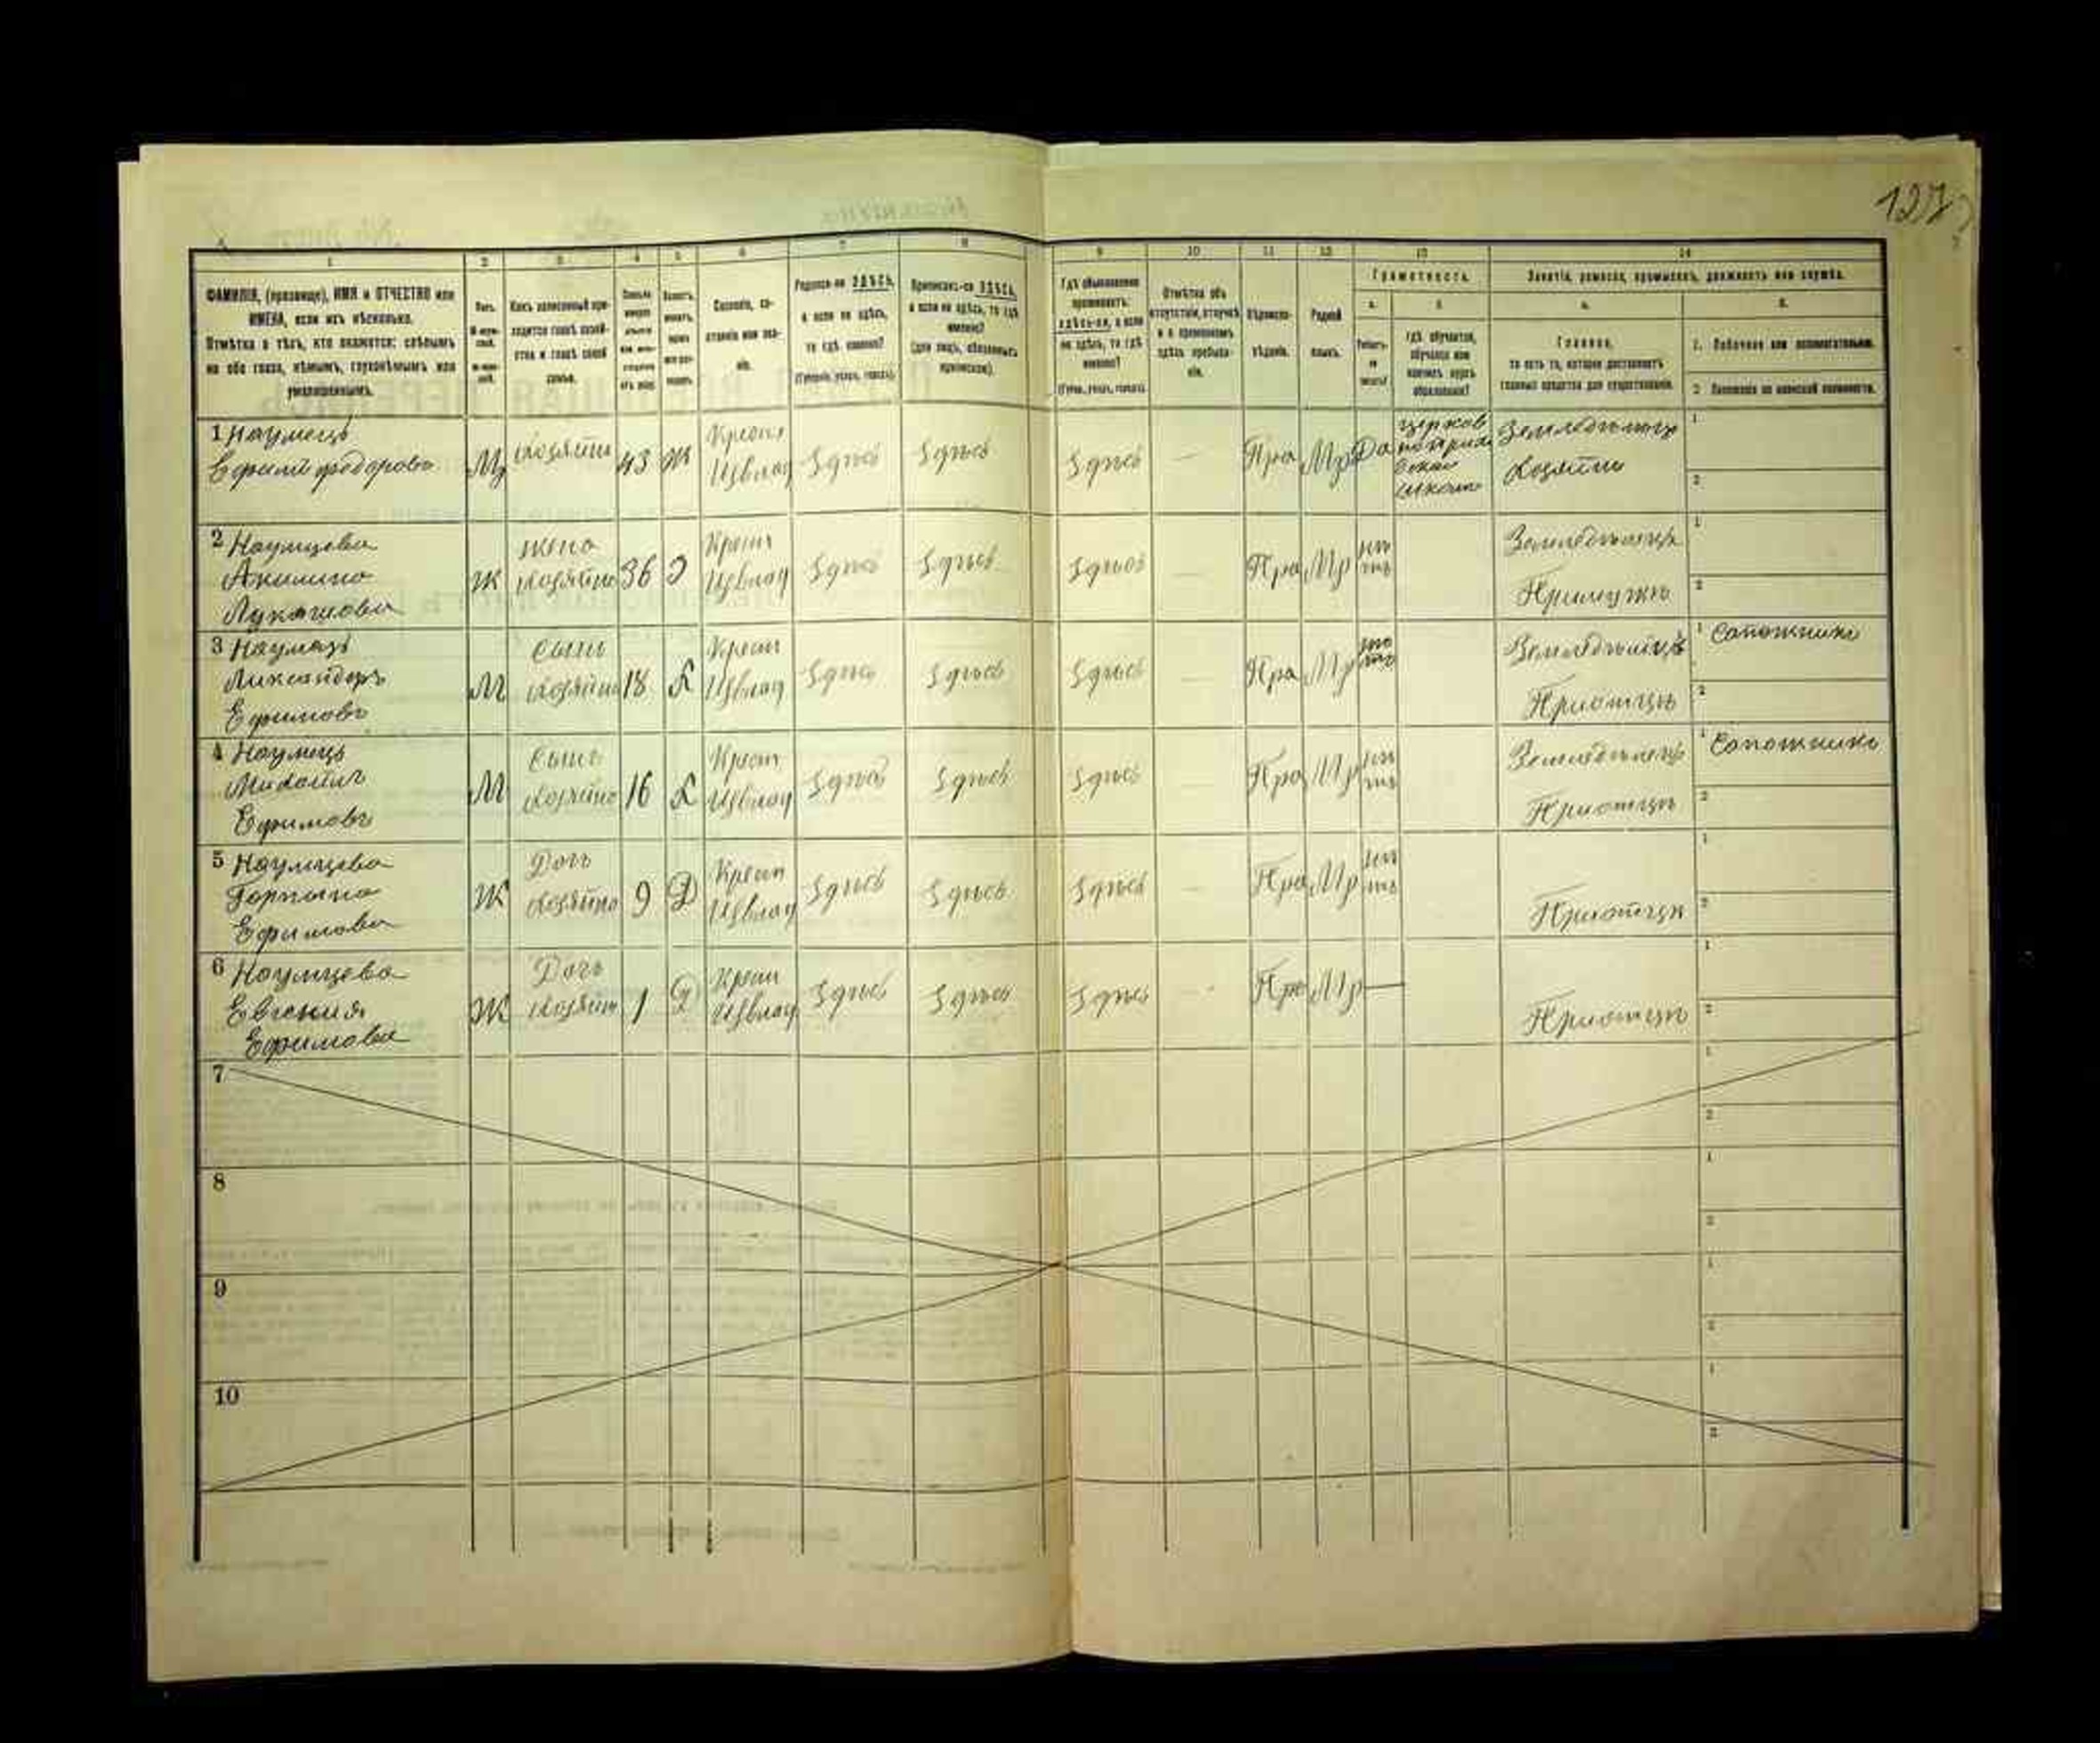 127
1 2 3 4 5 6 7 8 9 10 11 12 13 14
ФАМИЛІЯ, (прозвище), ИМЯ и ОТЧЕСТВО или
ИМЕНА, если ихъ нѣсколько.
Отмѣтка о тѣхъ, кто окажется: слѣпымъ
на оба глаза, нѣмымъ, глухонѣмымъ или
умалишеннымъ.
Полъ.
Какъ записанный при-
ходится главѣ хозяй-
ства и главѣ своей
семьи.
Сословіе, со-
стояніе или зва-
ніе.
Родился-ли ЗДѢСЬ,
а если не здѣсь,
то гдѣ именно?
(Губернія, уѣздъ, городъ).
Приписанъ-ли ЗДѢСЬ,
а если не здѣсь, то гдѣ
именно?
(для лицъ, обязанныхъ
припискою).
Гдѣ обыкновенно
проживаетъ:
здѣсь-ли, а если
не здѣсь, то гдѣ
именно?
(Губ., уѣздъ, городъ).
Отмѣтка объ
отсутствіи, отлучкѣ
и о временномъ
здѣсь пребыва-
ніи.
Вѣроиспо-
вѣданіе.
Родной
языкъ.
Грамотность.
а. б.
гдѣ обучается,
обучался или
кончилъ курсъ
образованія?
Занятія, ремесло, промыселъ, должность или служба.
а. б.
Главное,
то есть то, которое доставляетъ
главныя средства для существованія.
1. Побочное или вспомогательное.
2 Положеніе по воинской повинности.
1 Наумецъ
Ефимъ Федоровъ
М хозяинъ 43 Ж
Здѣсь Здѣсь Здѣсь — Пра Мр Да
школа
Земледѣлецъ
Хозяинъ
1
2
2 Наумцева
Акилина
Лукашова
Ж
жена
хозяина
36 З
Здѣсь Здѣсь Здѣсь — Пра Мр
нѣтъ
Земледѣлецъ
Примужѣ
1
2
3 Наумецъ
Александръ
Ефимовъ
М
сынъ
хозяина
18 Х
Здѣсь Здѣсь Здѣсь — Пра Мр
нѣтъ
Земледѣлецъ
Приотцѣ
1 Сапожникъ
2
4 Наумецъ
Михаилъ
Ефимовъ
М
Сынъ
хозяина
16 Х
Здѣсь Здѣсь Здѣсь — Пра Мр
нѣтъ
Земледѣлецъ
Приотцѣ
1 Сапожникъ
2
5 Наумцева
Горпына
Ефимова
Ж
Дочь
хозяина
9 Д
Здѣсь Здѣсь Здѣсь — Пра Мр
нѣтъ
Приотцѣ
1
2
6 Наумцева
Евгения
Ефимова
Ж
Дочь
хозяина
1 Д
Здѣсь Здѣсь Здѣсь — Пра Мр —
Приотцѣ
1
2
7
1
2
8
1
2
9
1
2
10
1
2